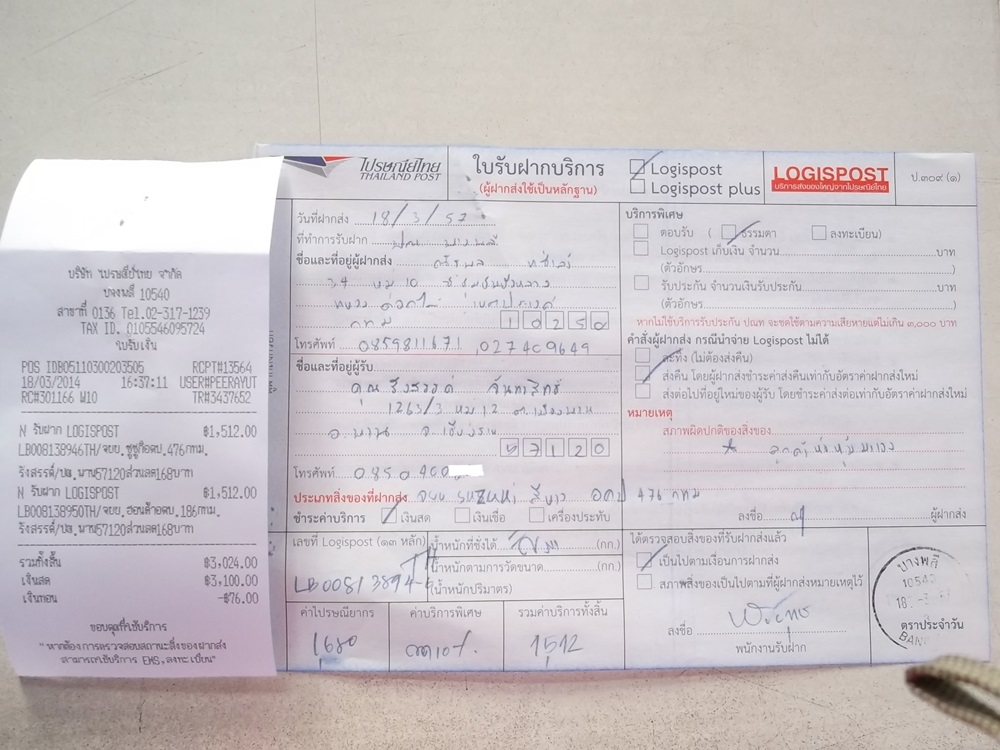 บริษัท ไปรษณีย์ไทย จำกัด
บางพลี 10540
สาขาที่ 0136 Tel.02-317-1239
TAX ID. 0105546095724
ใบรับเงิน
POS IDB05110300203505 RCPT#13564
18/03/2014 16:37:11 USER#PEERAYUT
RC#301166 W10 TR#3437652
N รับฝาก LOGISPOST ฿1,512.00
LB008138946TH/จยย.ซูซูกิอคบ.476กทม.
รังสรรค์/ปณ.พาน57120ส่วนลด168บาท
N รับฝาก LOGISPOST ฿1,512.00
LB008138950TH/จยย.ฮอนด้าอคบ.186กทม.
รังสรรค์/ปณ.พาน57120ส่วนลด168บาท
รวมทั้งสิ้น ฿3,024.00
เงินสด ฿3,100.00
เงินทอน -฿76.00
ขอบคุณที่ใช้บริการ
"หากต้องการตรวจสอบสถานะสิ่งของฝากส่ง
สามารถใช้บริการ EMS,ลงทะเบียน"
ไปรษณีย์ไทย
THAILAND POST
ใบรับฝากบริการ
(ผู้ฝากส่งใช้เป็นหลักฐาน)
Logispost
Logispost plus
LOGISPOST
บริการส่งของใหญ่จากไปรษณีย์ไทย
ป.๓๐๙ (๑)
วันที่ฝากส่ง 18/3/57
ที่ทำการรับฝาก ปณ บางพลี
ชื่อและที่อยู่ผู้ฝากส่ง
34 หมู่ 10
กทม 10250
โทรศัพท์ 0859811671, 027409649
ชื่อและที่อยู่ผู้รับ
คุณ รังสรรค์ จันทาริทธิ์
1263/3 หมู่ 12 ต.เมืองพาน
อ.พาน จ.เชียงราย
57120
โทรศัพท์ 0850400
ประเภทสิ่งของที่ฝากส่ง จยย suzuki สีขาว อคบ 476 กทม
ชำระค่าบริการ เงินสด เงินเชื่อ เครื่องประทับ
เลขที่ Logispost (๑๓ หลัก) น้ำหนักที่ชั่งได้ (กก.)
น้ำหนักตามการวัดขนาด (กก.)
LB00813894 (น้ำหนักปริมาตร)
ค่าไปรษณียากร ค่าบริการพิเศษ รวมค่าบริการทั้งสิ้น
1680 ลด10% 1512
บริการพิเศษ
ตอบรับ ( ธรรมดา ลงทะเบียน)
Logispost เก็บเงิน จำนวน บาท
(ตัวอักษร )
รับประกัน จำนวนเงินรับประกัน บาท
(ตัวอักษร )
หากไม่ใช้บริการรับประกัน ปณท จะชดใช้ตามความเสียหายแต่ไม่เกิน ๓,๐๐๐ บาท
คำสั่งผู้ฝากส่ง กรณีนำจ่าย Logispost ไม่ได้
ละทิ้ง (ไม่ต้องส่งคืน)
ส่งคืน โดยผู้ฝากส่งชำระค่าส่งคืนเท่ากับอัตราค่าฝากส่งใหม่
ส่งต่อไปที่อยู่ใหม่ของผู้รับ โดยชำระค่าส่งต่อเท่ากับอัตราค่าฝากส่งใหม่
หมายเหตุ
สภาพผิดปกติของสิ่งของ
ลูกค้าหีบห่อมาเอง
ลงชื่อ ผู้ฝากส่ง
ได้ตรวจสอบสิ่งของที่รับฝากส่งแล้ว
เป็นไปตามเงื่อนการฝากส่ง
สภาพสิ่งของเป็นไปตามที่ผู้ฝากส่งหมายเหตุไว้
ลงชื่อ
พนักงานรับฝาก
บางพลี
10540
ตราประจำวัน